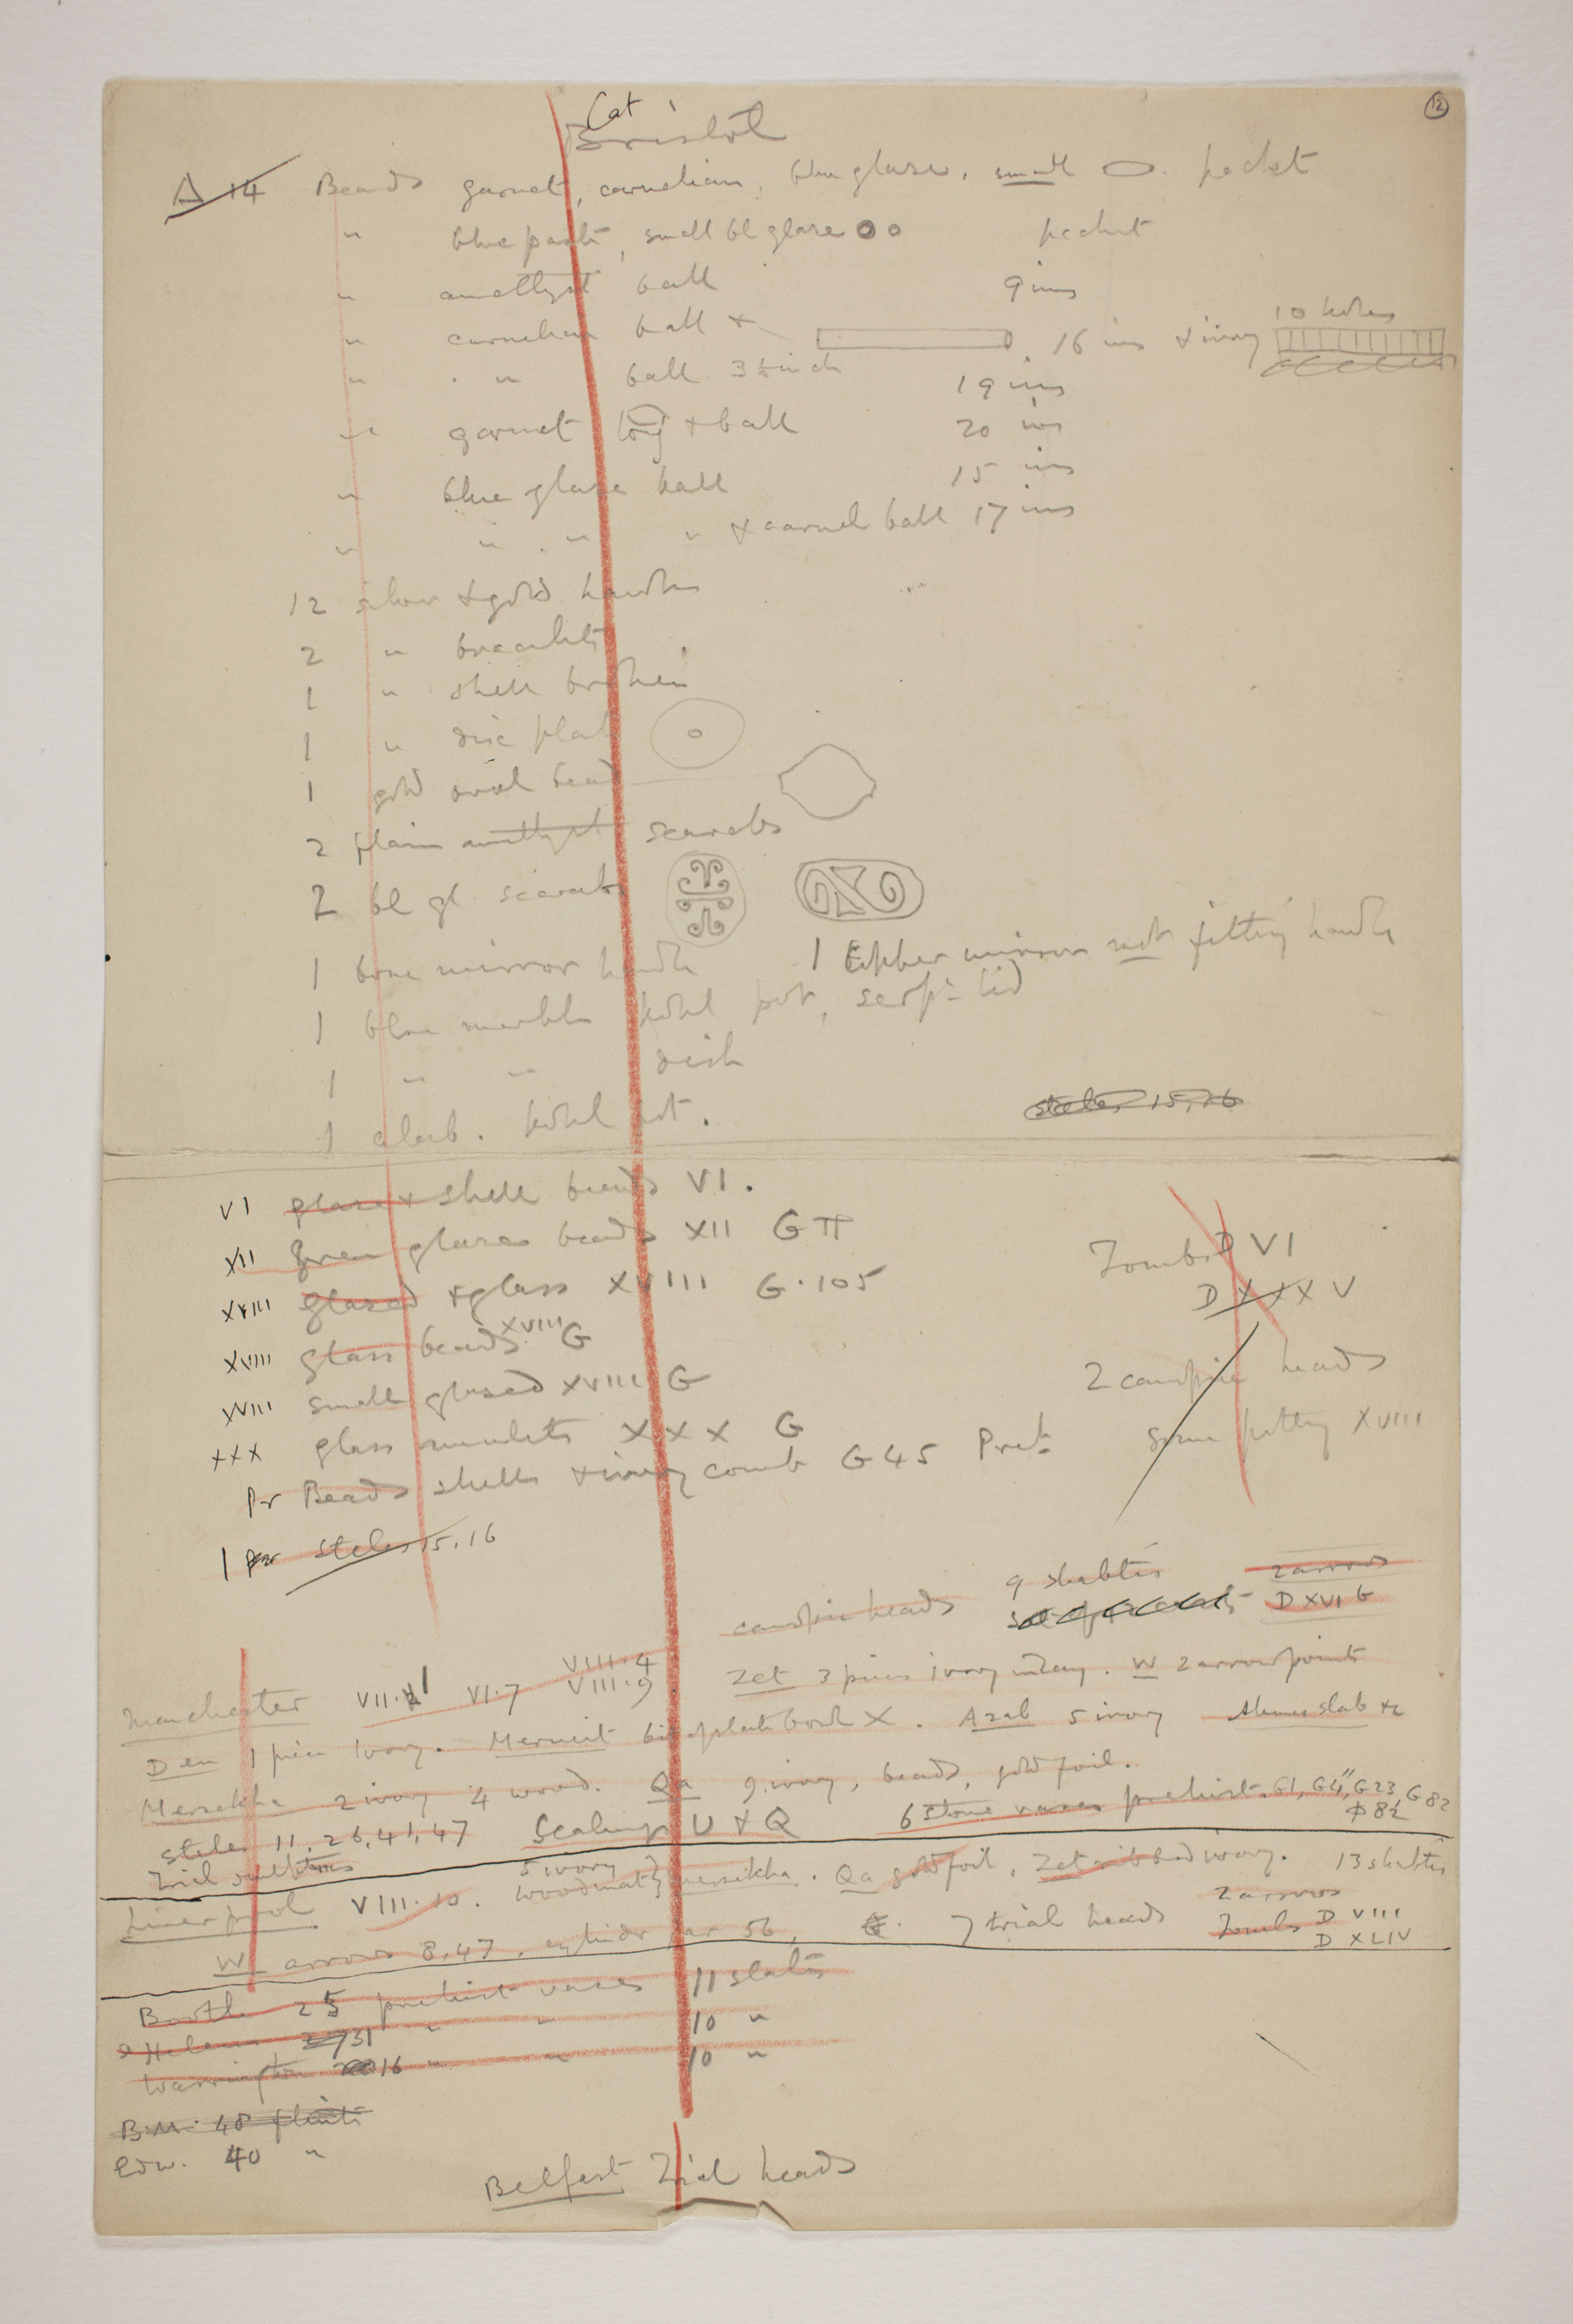 12
Cat
Bristol
Δ 14 Beads garnet, carnelian, blue glaze, small packet
" blue paste, small bl glaze packet
" amethyst ball 9 ins
" carnelian ball + 16 ins + ivory 10 holes
" " " ball 3 inch 19 ins
" garnet long + ball 20 ins
" blue glaze ball 15 ins
" " " " + carnel ball 17 ins
12 silver + gold
2 " bracelets
1 " shell broken
1 " disc plate
1 gold oval bead
2 plain amethyst scarabs
2 bl gl. scarabs
1 bone mirror handle 1 copper mirror not fitting handle
1 blue marble kohl pot, serpn lid
1 " " dish
1 alab. kohl pot.
steles 15, 16
VI glaze + shell beads VI.
XII green glaze beads XII G
XVIII glazed + glass XVIII G.105
XVIII glass beads XVIII G
XVIII small glazed XVIII G
XXX glass amulets XXX G
Pr Beads shells + ivory comb G 45 Pret.
1 steles 15, 16
Tombs D VI
D XXXV
2 canopic heads
some XVIII
canopic heads 9 shabtis 2 arrows
D XVI G
Manchester VII. 1 VI.7 VIII.4 VIII.9. Zet 3 pieces ivory inlay. W 2 arrow points
Den 1 piece ivory. Merneit bit of plate X. Azab 5 ivory slab
Mersekha 2 ivory 4 wood. Qa 9 ivory, beads, gold foil.
steles 11, 26, 41, 47 Sealings U + Q 6 stone vases prehist. G1, G4, G23, G82
Trial
Liverpool VIII.10. 5 ivory wood mat Mersekha. Qa gold foil, Zet ivory. 13 shabtis
W arrows 8, 47, cylinder jar 56, 7 trial heads 2 arrows
Tombs D VIII
D XLIV
Bootle 25 prehist vases 11 slates
St Helens 31 " " 10 "
Warrington 16 " " 10 "
B.M. 48 flints
Edw. 40 "
Belfast Trial heads